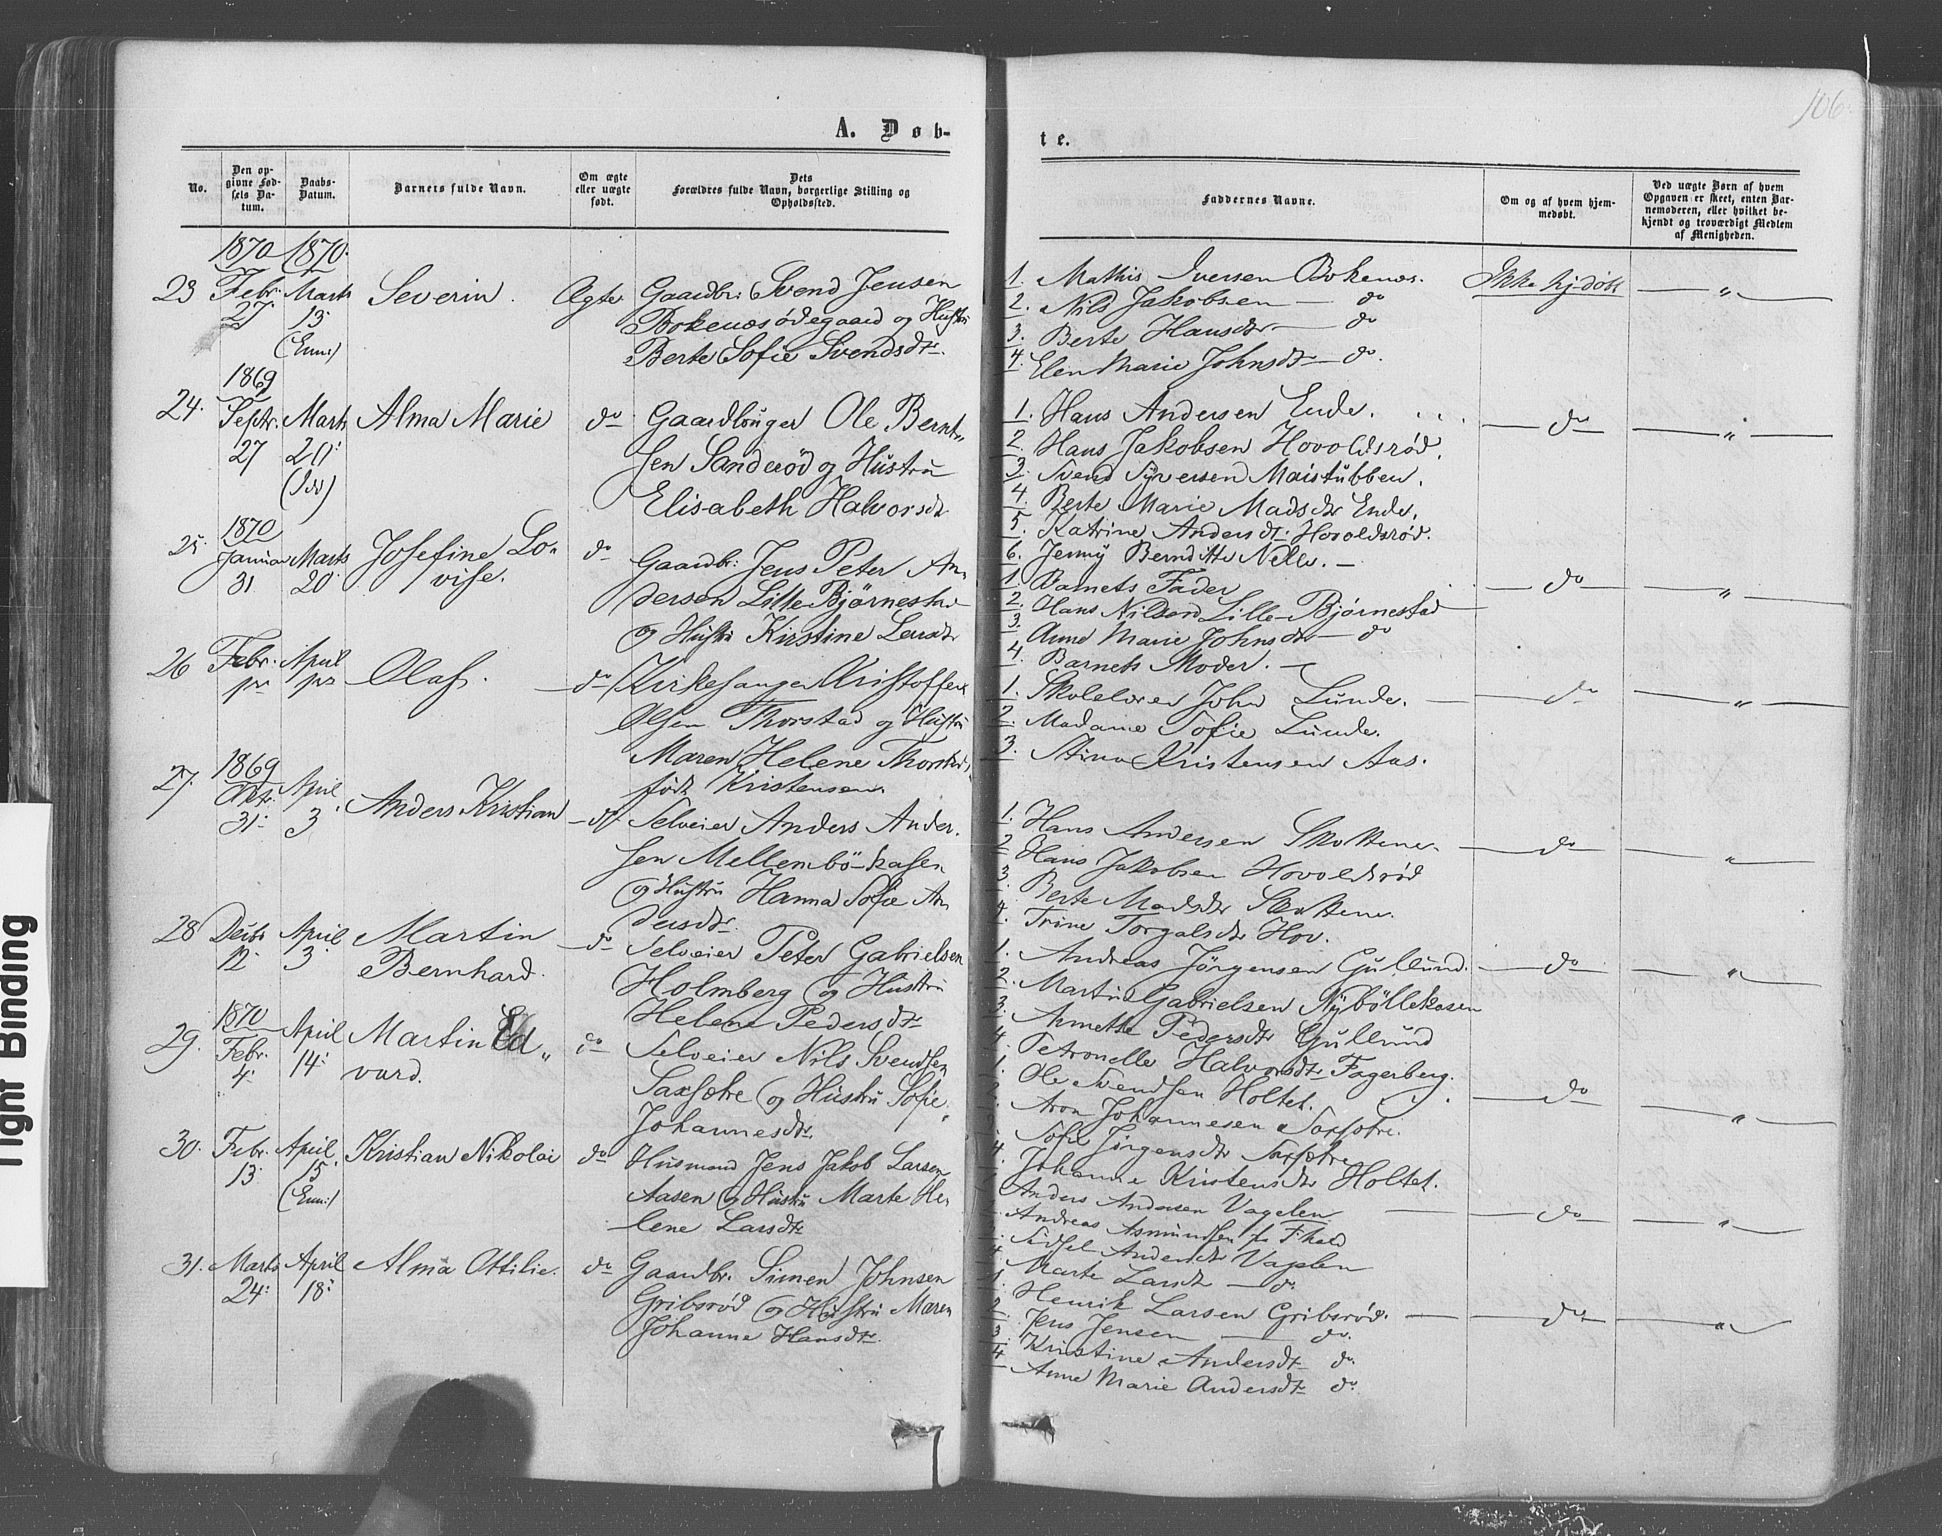 106.
A. Døb-
te.
No.
Den op-
givne Fød-
sels Da-
tum.
Daabs-
Datum.
Barnets fulde Navn.
Om ægte
eller uægte
født.
Dets
Forældres fulde Navn, borgerlige Stilling og
Opholdssted.
Faddernes Navne.
Om og af hvem hjem-
medøbt.
Ved uægte Børn af hvem
Opgaven er skeet, enten Bar-
nemoderen, eller hvilket be-
kjendt og troværdigt Medlem
af Menigheden.
1870 1870.
23 Febr. Marts Severin. Ægte Gaardbr: Svend Jensen
27. 13 Bokenæs ødegaard og Hustru
(Enn:) Berte Sofie Svendsdtr.
1. Mathis Iversen Bokenæs. Ikke hj.døbt — „ —
2. Nils Jakobsen — do
3. Berte Hansdtr — do
4. Elen Marie Johnsdtr — do.
1869
24. Septr. Marts Alma Marie do Gaardbruger Ole Bernt-
27 20: sen Sanderød og Hustru
(Idd) Elisabeth Halvorsdtr
1. Hans Andersen Ende. — do — „ —
2. Hans Jakobsen Hovoldsrød.
3. Svend Syversen Maistubben.
4. Berte Marie Madsdtr Ende.
5. Katrine Andersdtr: Hovoldsrød.
6. Jenny Bernditte Nells. —
1870
25. Januar Marts Josefine Lo- do Gaardbr: Jens Peter An-
31 20. vise. dersen Lille Bjørnestad
og Hustru Kirstine Larsdtr
1. Barnets Fader — do — „ —
2. Hans Nilsen Lille-Bjørnestad
3. Anne Marie Johnsdtr — do
4. Barnets Moder. —
26 Febr. April Olaf. — do Kirkesanger Kristoffer
Olsen Thorstad og Hustru
Maren Helene Thorstad,
født Kristensen.
1. Skolelærer John Lunde. — do — „ —
2. Madame Sofie Lunde.
3. Stina Kristensen Aas.
1869
27. Oktr. April Anders Kristian — do Selveier Anders Ander-
31: 3 sen Mellembö-kasen
og Hustru Hanna Sofie An-
dersdtr.
1. Hans Andersen Skottene — do — „ —
2. Hans Jakobsen Hovoldsrød
3. Berte Madsdtr Skottene.
4. Trine Torgalsdtr Hov.
28 Decbr April Martin — do Selveier Peter Gabrielsen
12 3 Bernhard. Holmberg og Hustru
Helene Pedersdtr
1. Andreas Jörgensen Gullund. — do — „ —
2. Martin Gabrielsen Nybøllekasen
3. Annette Pedersdtr Gullund
4. Petronelle Halvorsdtr Fagerberg.
1870
29. Febr. April Martin Ed- do Selveier Nils Svendsen
4. 14. vard. Saxsøtre og Hustru Sofie
Johannesdtr
1. Ole Svendsen Holtet. — do — „ —
2. Aron Johannesen Saxsøtre.
3. Sofie Jörgensdtr Saxsøtre
4. Johanne Kristensdtr Holtet.
30. Febr. April Kristian Nikolai do Husmand Jens Jakob Larsen
13 15 Aasen og Hustru Marte He-
(Enn:) lene Larsdtr
1. Anders Andersen Vagelen — do — „ —
2. Andreas Asmundsen Fr.hald
3. Sidsel Andersdtr Vagelen
4. Marte Larsdtr — do.
31. Marts April Alma Ottilie. do Gaardbr. Simen Johnsen
24: 18: Gribsrød og Hustru Maren
Johanne Hansdtr.
1. Henrik Larsen Gribsrød. — do — „ —
2. Jens Jensen — do.
3. Kristine Andersdtr do.
4. Anne Marie Andersdtr do.
Tight Binding